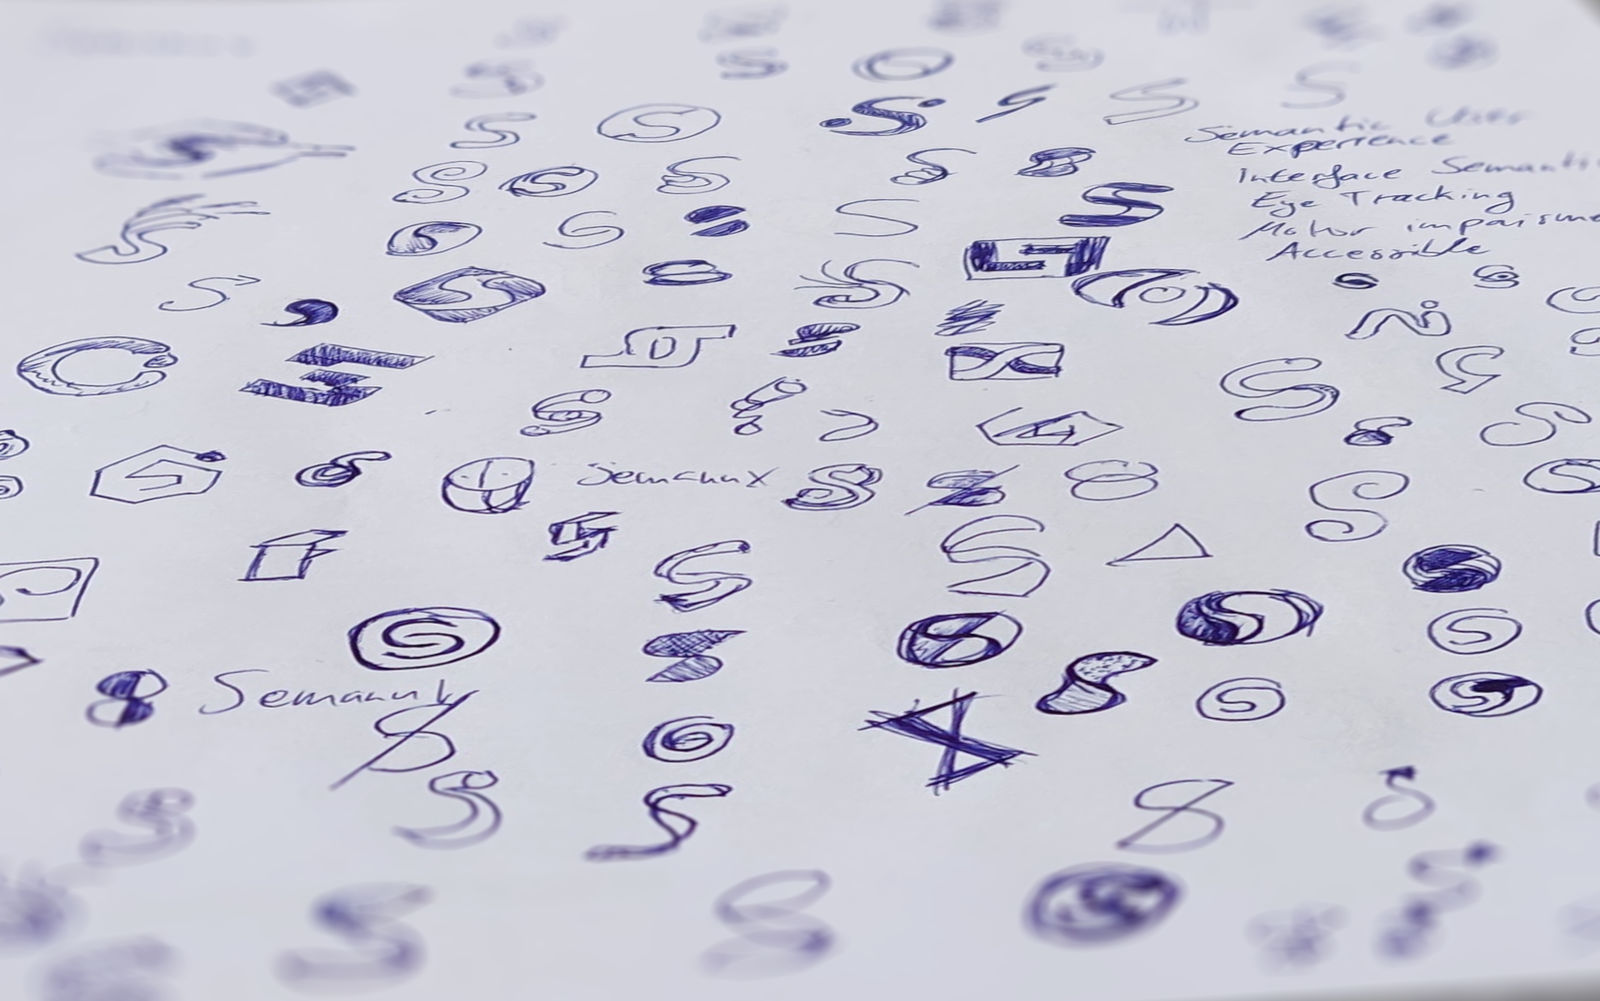 Semantic User
Experience
Interface Semanti
Eye Tracking
Motor impairme
Accessible
Semanux
Semanux